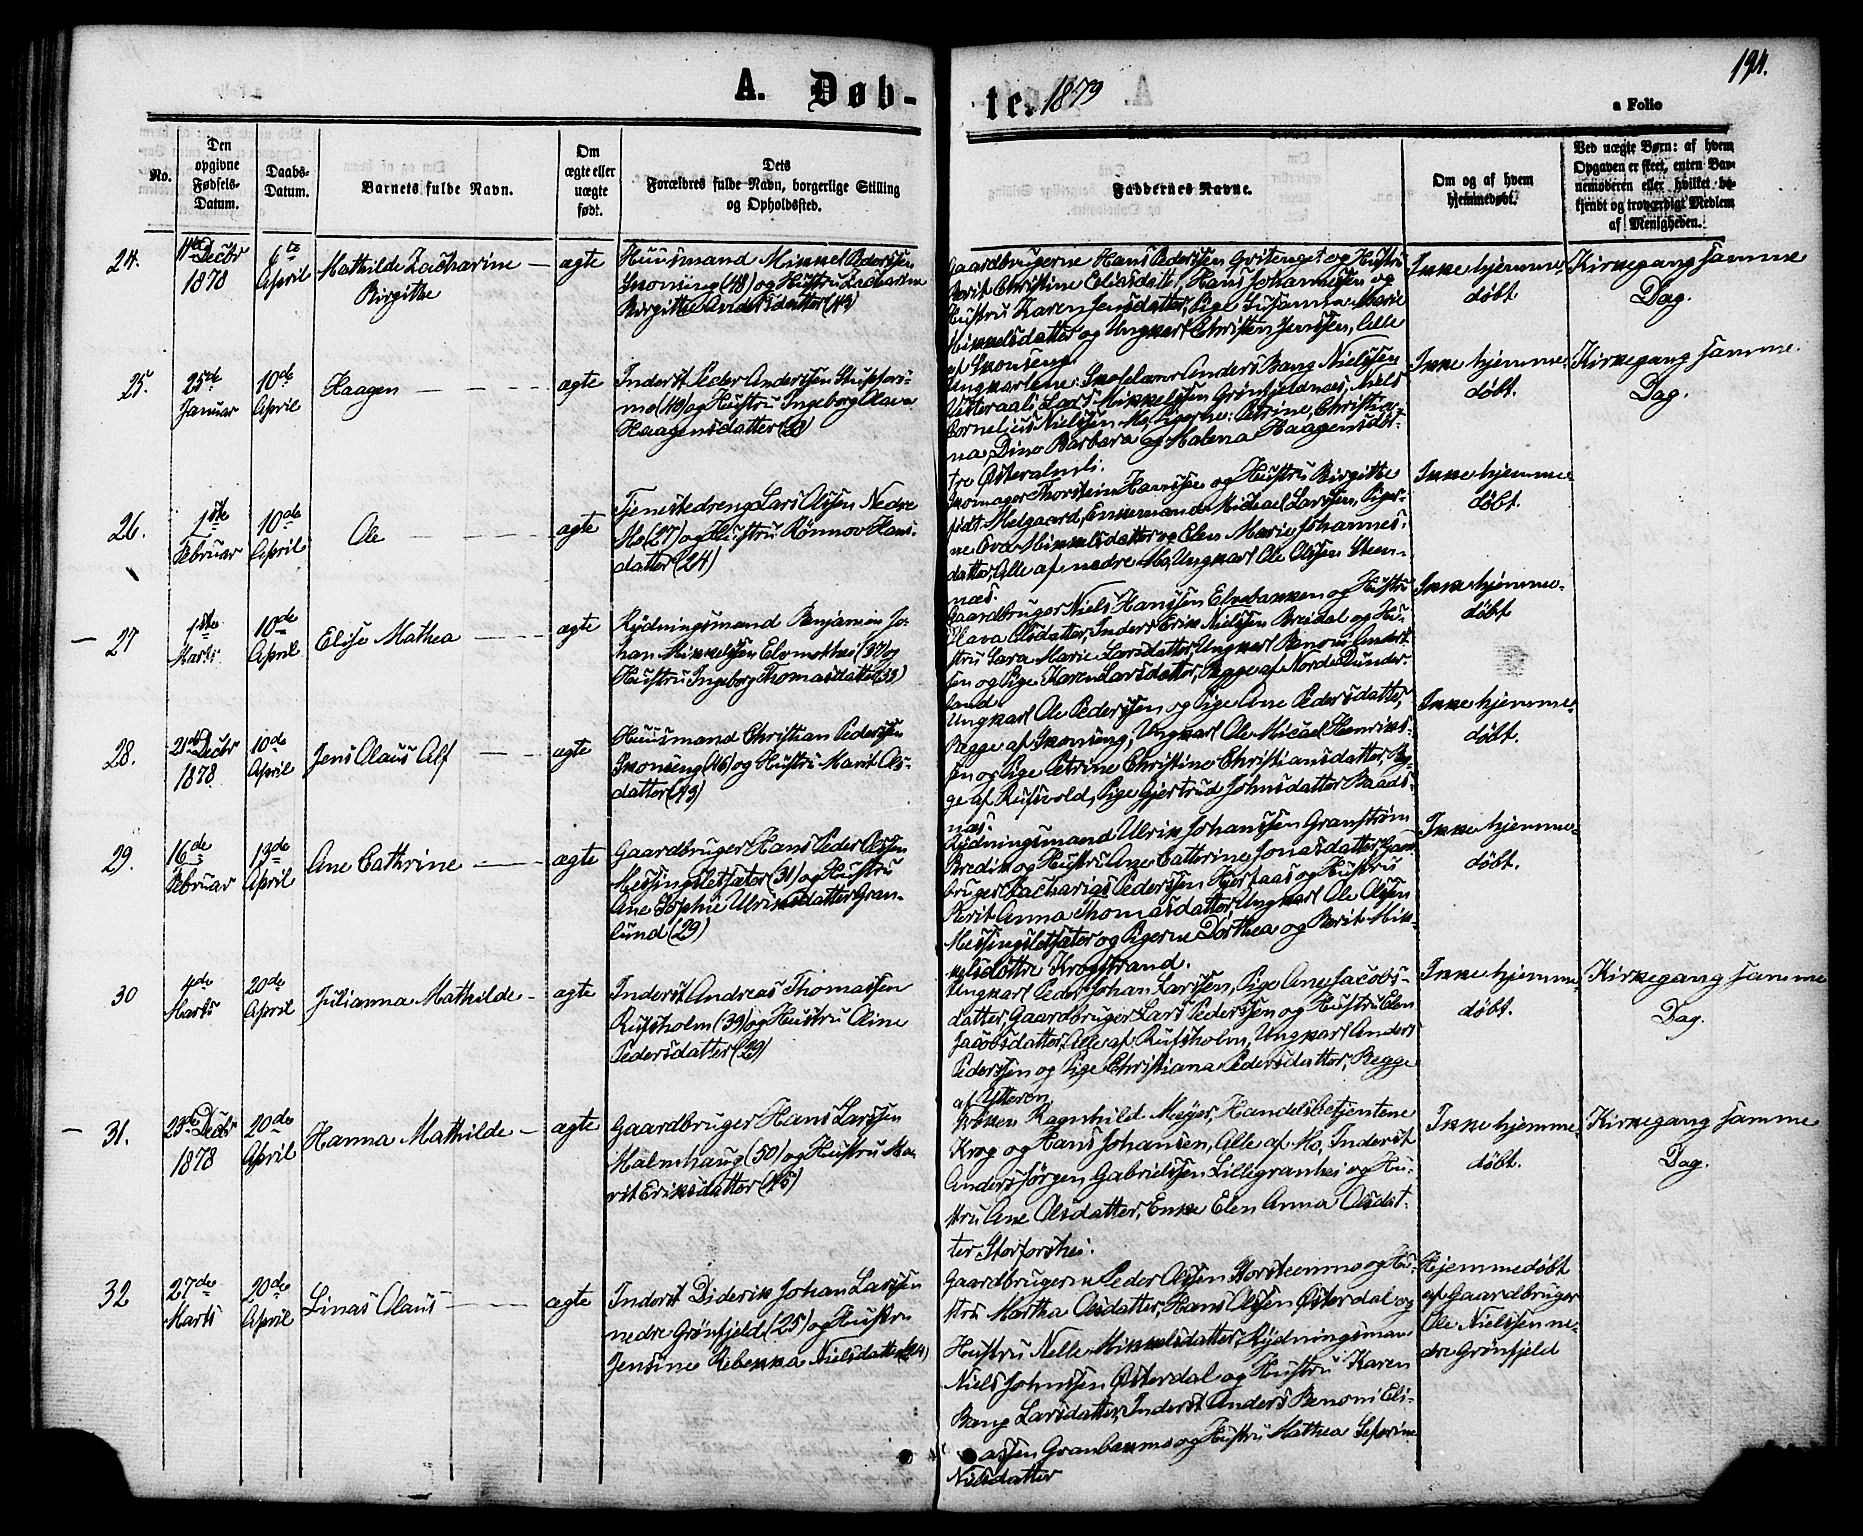 194.
A. Døb-
te. 1879
a Folio
No.
Den
opgivne
Fødsels-
Datum.
Daabs-
Datum.
Barnets fulde Navn.
Om
ægte eller
uægte
født.
Dets
Forældres fulde Navn, borgerlige Stilling
og Opholdssted.
Faddernes Navne.
Om og af hvem
hjemmedøbt.
Ved uægte Børn: af hvem
Opgaven er skeet, enten Bar-
nemoderen eller hvilket be-
kjendt og troværdigt Medlem
af Menigheden.
24.
Decbr
1878
6te
April
Mathilde Zacharine
Birgitte
ægte
Huusmand Mikkel Pedersen
Skonseng (48) og Hustru Zacharine
Birgitte Andersdatter (43)
Gaardbrugerne Hans Pedersen og Hustru
Berit Christine Eliasdatt, Hans Johannesen og
Hustru Karen Jensdatter, Pige Susanna Marie
Mikkelsdatter og Ungkarl Christen Jenssen, Alle
af Skonseng
Ikke hjemme
døbt
Kirkegang samme
Dag.
25.
25de
Januar
10de
April
Haagen
ægte
Inderst Peder Anderssen Stupfors-
mo (40) og Hustru Ingeborg Olava
Haagensdatter
Ungkarlene: Skolelærer Anders Bang Nielssen
Ytteraali Lars Mikkelssen Grønfjeldnæs, Niels
Cornelius Nielssen Mo, Pigerne: Petrine, Christia-
na, Dina Barbara og Malena Haagensdøt-
tre Østeralmli.
Ikke hjemme
døbt.
Kirkegang samme
Dag.
26.
1ste
Februar
10de
April
Ole
ægte
Tjenestedreng Lars Olssen Nedre
Mo (27) og Hustru Rønnov Hans-
datter (24)
Skomager Thorstein Hanssen og Hustru Birgitte
født Melgaard, Enkemand Michael Larssen, Piger-
ne Ova Mikkelsdatter og Elen Marie Johannes-
datter, Alle af nedre Mo, Ungkarl Ole Olssen Sten-
næs.
Ikke hjemme
døbt.
27
1ste
Marts
10de
April
Elise Mathea
ægte
Rydningsmand Benjamin Jo-
han Mikkelsen Elvmothei (37) og
Hustru Ingeborg Thomasdatter (39)
Gaardbruger Niels Hanssen Elvebakken og Hustru
Olava Olsdatter, Inderst Erik Nielssen Bredal og Hu-
stru Sara Marie Larsdatter, Ungkarl Benoni Anders-
sen og Pige Karen Larsdatter, Begge af Nordre Dunder-
land
Ikke hjemme-
døbt
28.
21de Decbr
1878
10de
April
Jens Olaus Alf
ægte
Huusmand Christian Pedersen
Skonseng (46) og Hustru Marit Ols-
datter (43)
Ungkarl Ole Pederssen og Pige Ane Pedersdatter,
Begge af Skonseng, Ungkarl Ole Micael Henriks-
sen og Pige Petrine Christine Christiansdatter, Beg-
ge af Rufsvold, Pige Gjertrud Johnsdatter Baads-
næs.
Ikke hjemme-
døbt.
29.
16de
Februar
13de
April
Ane Cathrine
ægte
Gaardbruger Hans Peder Olssen
Messingsletsæter (31) og Hustru
Ane Sophie Ulriksdatter Gran-
lund (29)
Rydningsmand Ulrik Johanssen Granstrøm
Bredik og Hustru Ane Catterine Jonasdatter, Gaard-
bruger Zacharias Pederssen Hjertaas og Hustru
Berit Anna Thomasdatter, Ungkarl Ole Olssen
Messingsletsæter og Pigerne Dorthea og Berit Mik-
kelsdøttre Krogstrand.
Ikke hjemme-
døbt.
30
4de
Marts
20de
April
Julianna Mathilde
ægte
Inderst Andreas Thomassen
Rufsholm (39) og Hustru Oline
Pedersdatter (29)
Ungkarl Peder Johan Larssen, Pige Ane Jacobs-
datter, Gaardbruger Lars Pederssen og Hustru Elen
Jacobsdatter, Alle af Rufsholm, Ungkarl Anders
Pederssen og Pige Christiana Pedersdatter, Begge
af Ytteren.
Ikke hjemme
døbt.
Kirkegang samme
Dag.
31.
23de Decbr
1878
20de
April
Hanna Mathilde
ægte
Gaardbruger Hans Larssen
Malmhaug (50) og Hustru Ma-
rit Eriksdatter (45)
Frøken Ragnhild Meyer, Handelsbetjentene
Krog og Hans Johansen, Alle af Mo, Inderst
Anders Jørgen Gabrielssen Lillegranhei og Hu-
stru Ane Olsdatter, Enke Elen Anna Olsdat-
ter Storforshei.
Ikke hjemme-
døbt.
Kirkegang samme
Dag.
32
27de
Marts
20de
April
Linas Olaus
ægte
Inderst Diderik Johan Larssen
nedre Grønfjeld (25) og Hustru
Jensine Rebekka Nielsdatter (24)
Gaardbrugern Peder Olssen Storstenmo og Hu-
stru Martha Olsdatter, Hans Olssen Østerdal og
Hustru Nelle Mikkelsdatter, Rydningsman
Niels Johnssen Østerdal og Hustru Karen
Bang Larsdatter, Inderst Anders Benoni Eli-
assen Granbakmo og Hustru Mathea Seferine
Nilsdatter
Hjemmedøbt
af Gaardbruger
Ole Nielssen ne-
dre Grønfjeld